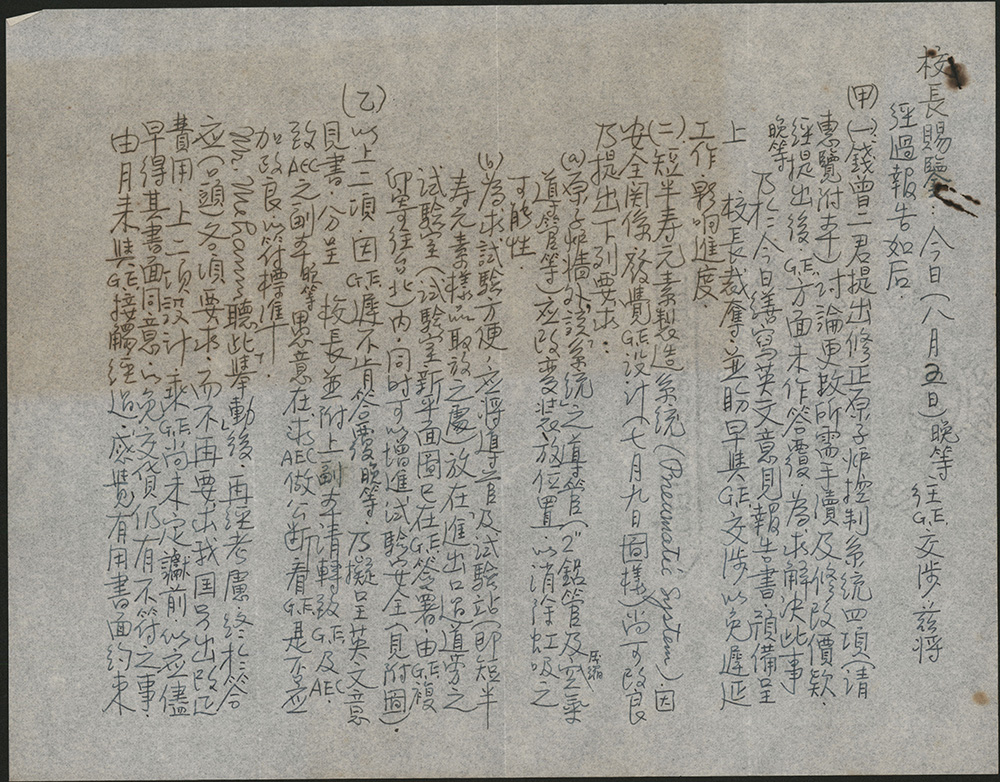 校長賜鑒：今日（八月五日）晚等往G.E.交涉茲將
經過報告如后．
（甲）（一）錢曾二君提出修正原子炉控制系統四項（請
惠覽附本）討論更改所需手續及修改價款．
經提出後G.E.方面未作答覆．為求解決此事
晚等乃於今日繕寫英文意見報告書．預備呈
上　校長裁奪．並盼早與G.E.交涉以免遲延
工作．影响進度．
（二）短半寿元素製造系統（Pneumatic System）因
安全関係發覺G.E.設計（七月九日圖樣）尚可改良
乃提出下列要求：
(a)原子炉牆外"該系統"之導管（2"鋁管及壓縮空氣
導管等）应改变裝放位置．以消除虹吸之
可能性．
(b)為求試驗方便．应將導管及試驗站（即短半
寿元素樣品取放之處）放在進出口過道旁之
試驗室（試驗室新平面圖已在G.E.簽署．由G.E.複
印寄往台北）内．同時可以增進試驗安全（見附圖）．
（乙）以上二項．因G.E.遲不肯答覆晚等．乃擬呈英文意
見書一份呈　校長並附上副本請轉致G.E.及AEC．
致AEC之副本晚等愚意在求AEC做公断．看G.E.是否应
加改良．以符標準．
Mr. 聽此舉動後．再經考慮終於答
应（口頭）各項要求．而不再要求我国另出改正
費用．上二項設計乘G.E.尚未定讞前．以应儘
早得其書面同意．以免交貨仍有不符之事．
由月来與G.E.接觸經過．感覺有用書面約束